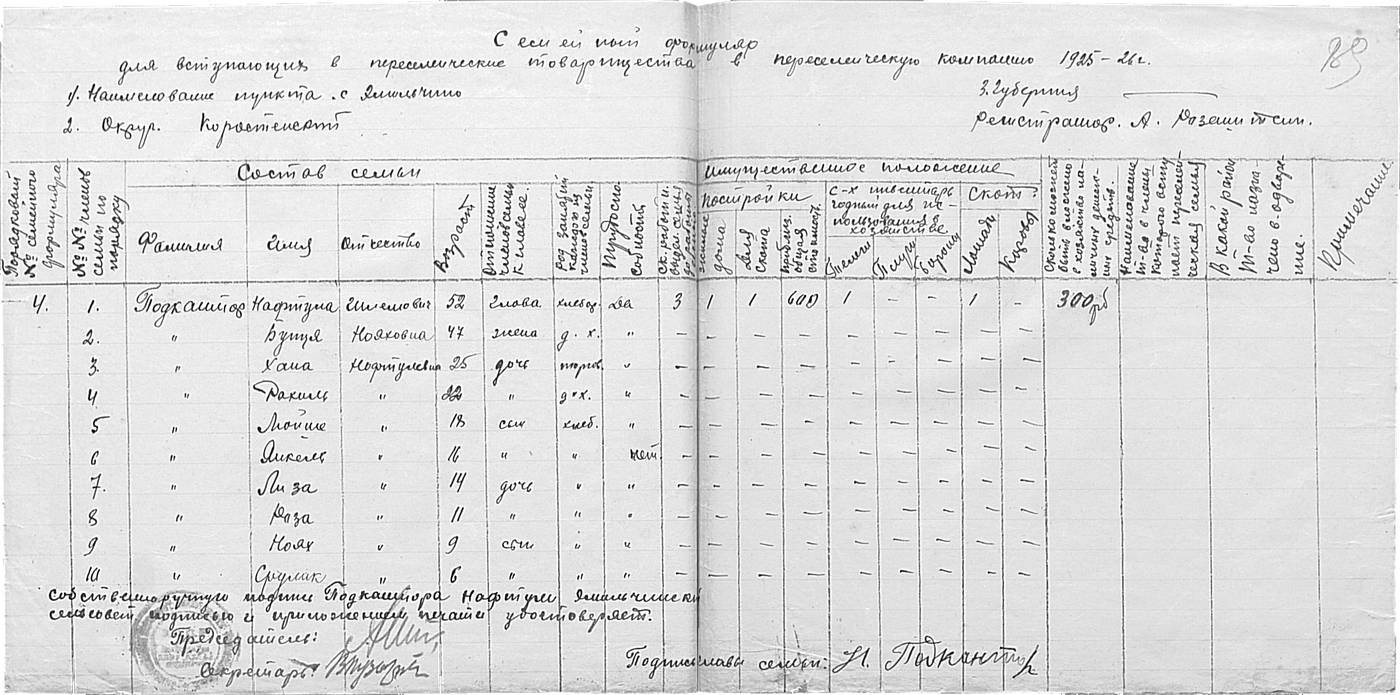 Семейный формуляр
для вступающих в переселенческие товарищества в переселенческую компанию 1925-26 г.
1. Наименование пункта с Эмильчино
2. Округ. Коростенский
3. Губерния ——
Регистратор. А.
189
Порядковый № семейного формуляра
№ № членов семьи по порядку
Состав семьи
Имущественное положение
Фамилия
Имя
Отчество
Возраст
Отношение членов семьи к главе ее.
Род занятий каждого из членов семьи
Трудоспособность
Постройки
С-х инвентарь годный для использования в хозяйстве
Скот.
дома
Для скота
Телеги
Плуги
Бороны
Лошади
Коровы
Наименование Т-во в члены которого вступает переселенческая семья
В какой район Т-во назначено в-водворение.
Примечание
4. 1. Подкантор Нафтула Шлемович 52 глава хлебор. Да 3 1 1 600 1 – – 1 – 300 рб
2. " Бунця Нояховна 47 жена д. х. " – – – – – – – – –
3. " Хана Нафтулевна 25 дочь портн. " – – – – – – – – –
4 " Рахиль " 22 " д.х. " – – – – – – – – –
5 " Мойше " 18 сын хлеб. " – – – – – – – – –
6 " Янкель " 16 " " нет. – – – – – – – – –
7. " Лиза " 14 дочь " " – – – – – – – – –
8 " Роза " 11 " " " – – – – – – – – –
9 " Ноях " 9 сын " " – – – – – – – – –
10 " Срулик " 6 " " " – – – – – – – – –
собственноручную подпись Подкантора Нафтули Эмильчински
сельсовет подписью и приложением печати удостоверяет.
Председатель:
Секретарь:
Подпись главы семьи: Н. Подкантор